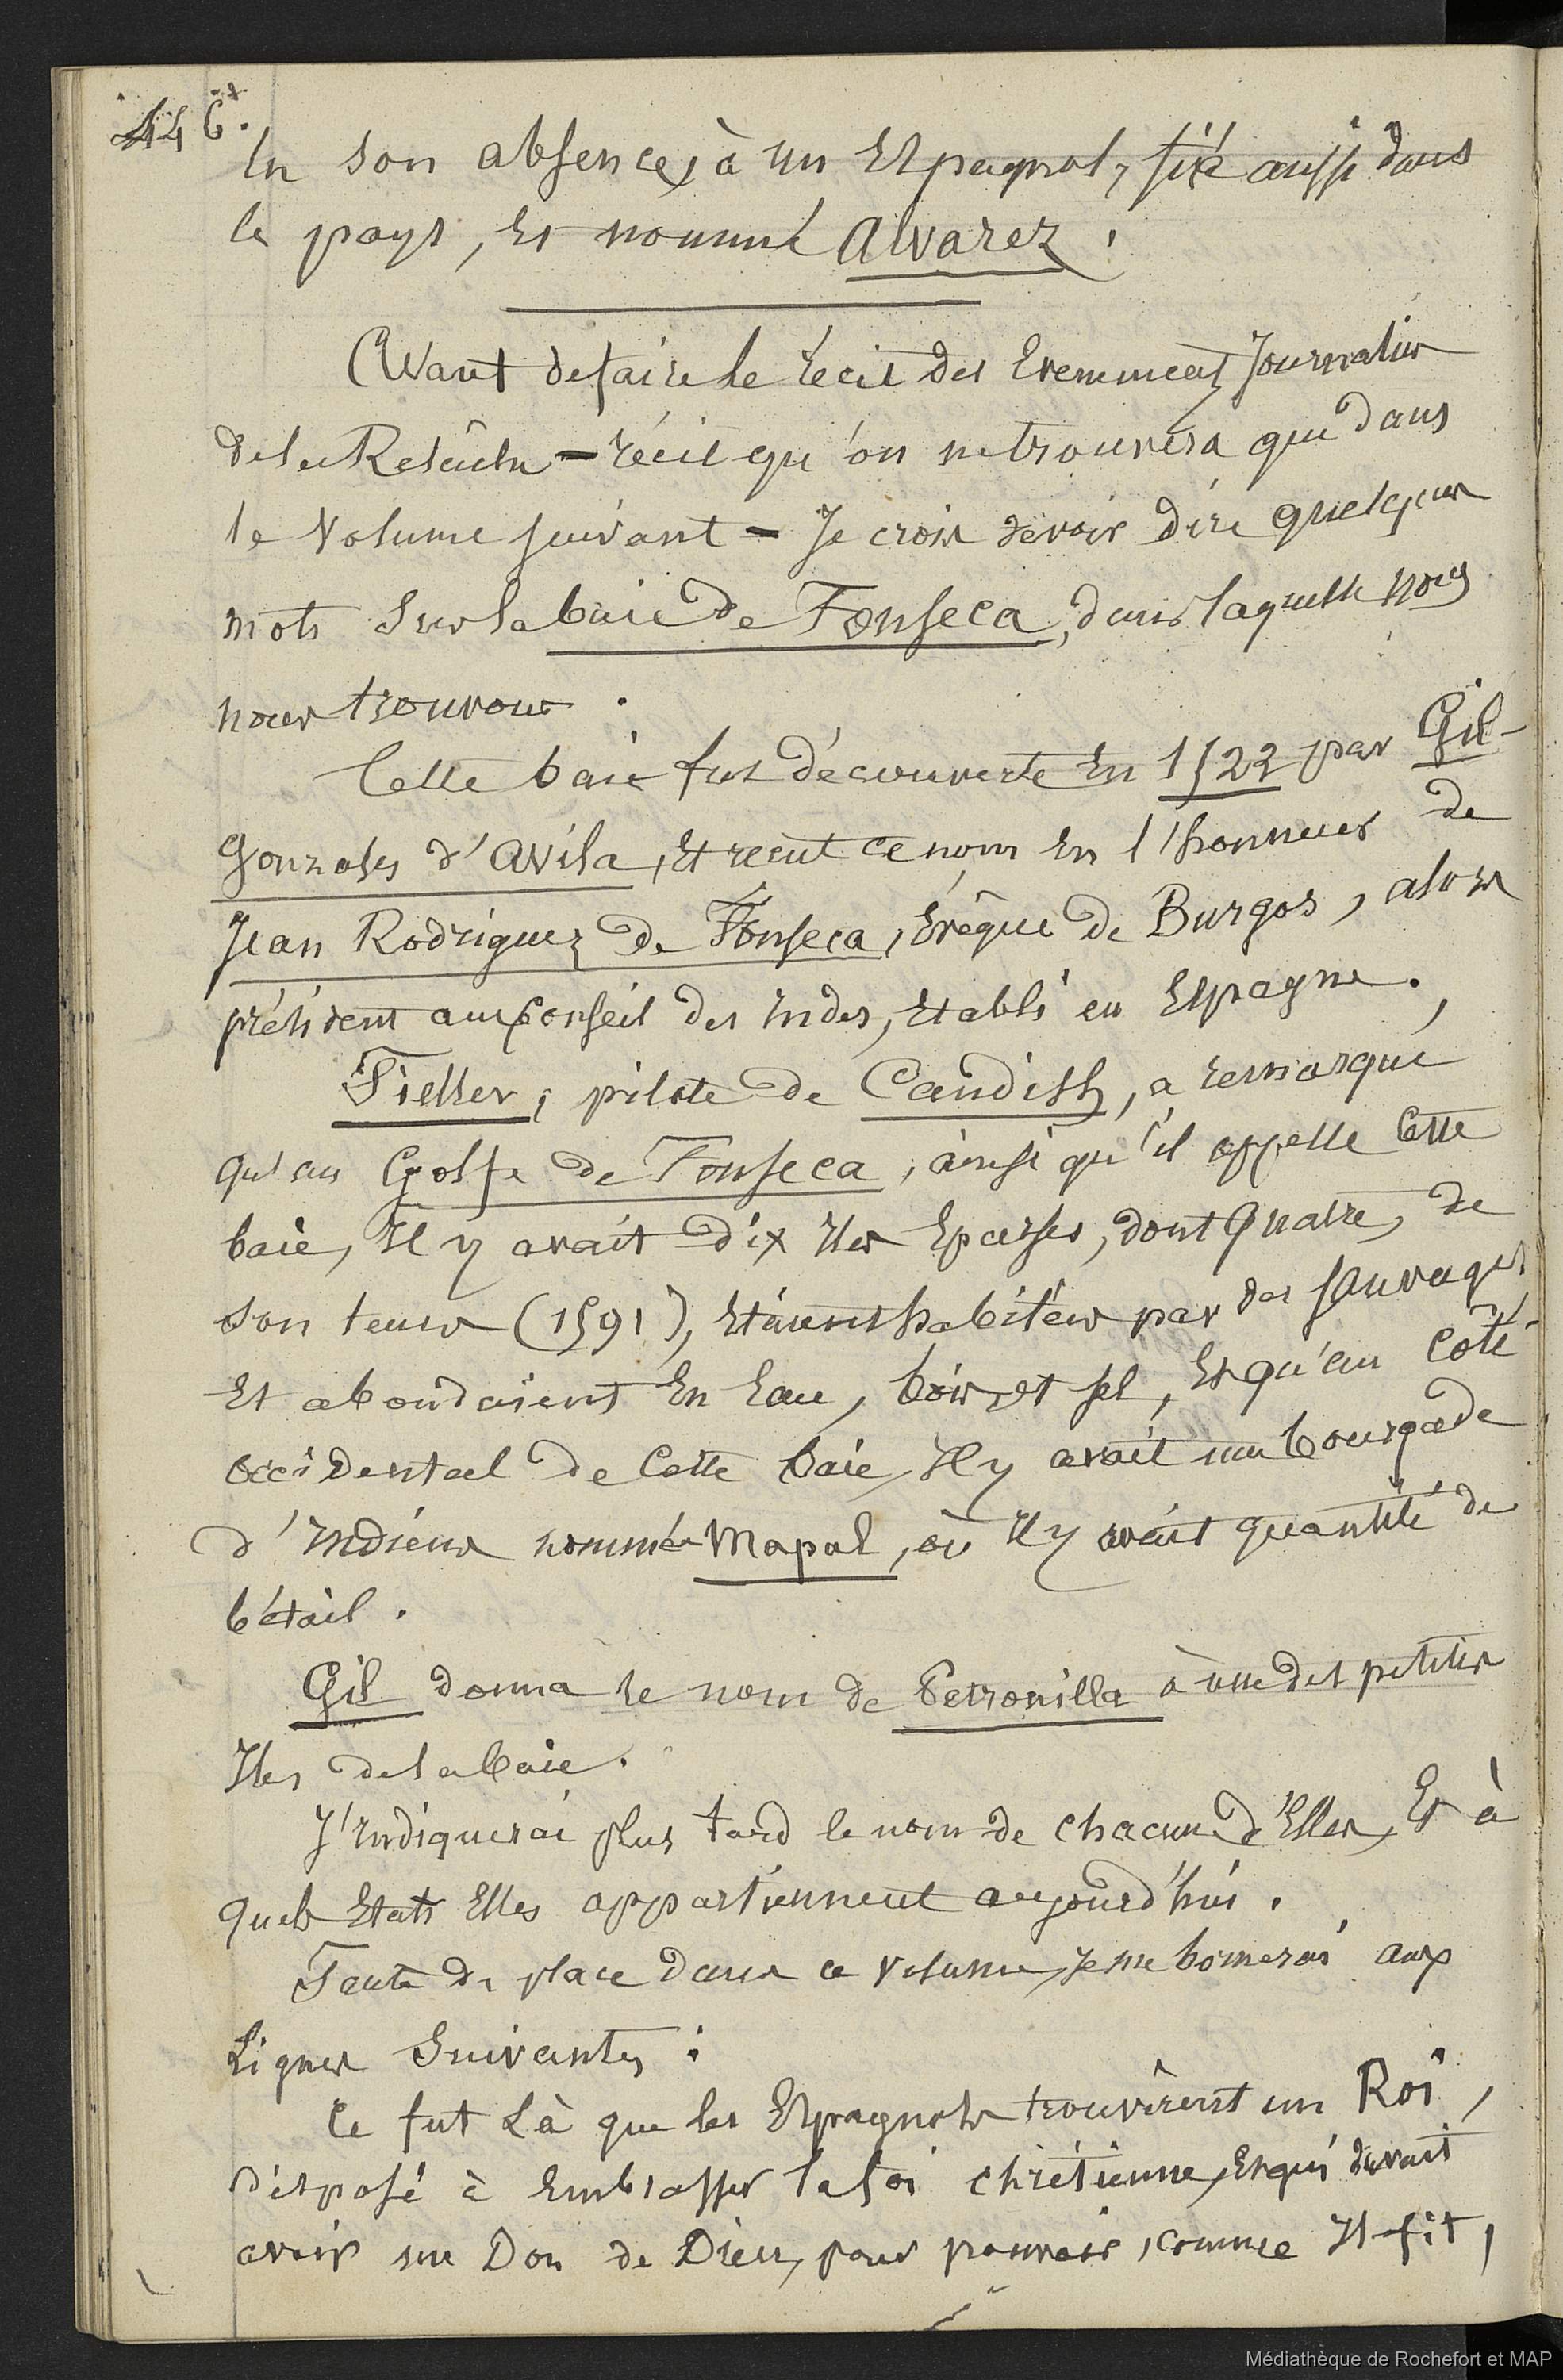 446.
En son absence, à un Espagnol, fixé aussi dans
le pays, Et nommé Alvarez.
Avant de faire le récit des Evenements Journaliers
de la Relâche — récit qu'on ne trouvera que dans
le Volume suivant — Je crois devoir dire quelques
mots sur la baie de Fonseca, dans laquelle nous
nous trouvons.
Cette baie fut découverte En 1522 par Gil-
Gonzales d'Avila, Et reçut ce nom En l'honneur de
Jean Rodriguez de Fonseca, Evêque de Burgos, alors
président au Conseil des Indes, Etabli en Espagne.
Fieller, pilote de Candish, a remarqué
qu'au Golfe de Fonseca, ainsi qu'il appelle Cette
baie, Il y avait dix Iles Eparses, dont quatre, de
son tems (1591), Etaient habitées par des sauvages
Et abondaient En Eau, bois et sel, Et qu'au Côté
occidental de Cette baie, Il y avait une bourgade
d'Indiens nommée Mapal, où Il y avait quantité de
bétail.
Gil donna le nom de Petronilla à une des petites
Iles de la baie.
J'Indiquerai plus tard le nom de chacune d'Elles, Et à
quels Etats Elles appartiennent aujourd'hui.
Faute de place dans ce volume, je me bornerai aux
Lignes Suivantes :
Ce fut Là que les Espagnols trouvèrent un Roi,
disposé à Embrasser la foi chrétienne, Et qui devait
avoir un Don de Dieu, pour pouvoir, comme Il fit,
Médiathèque de Rochefort et MAP